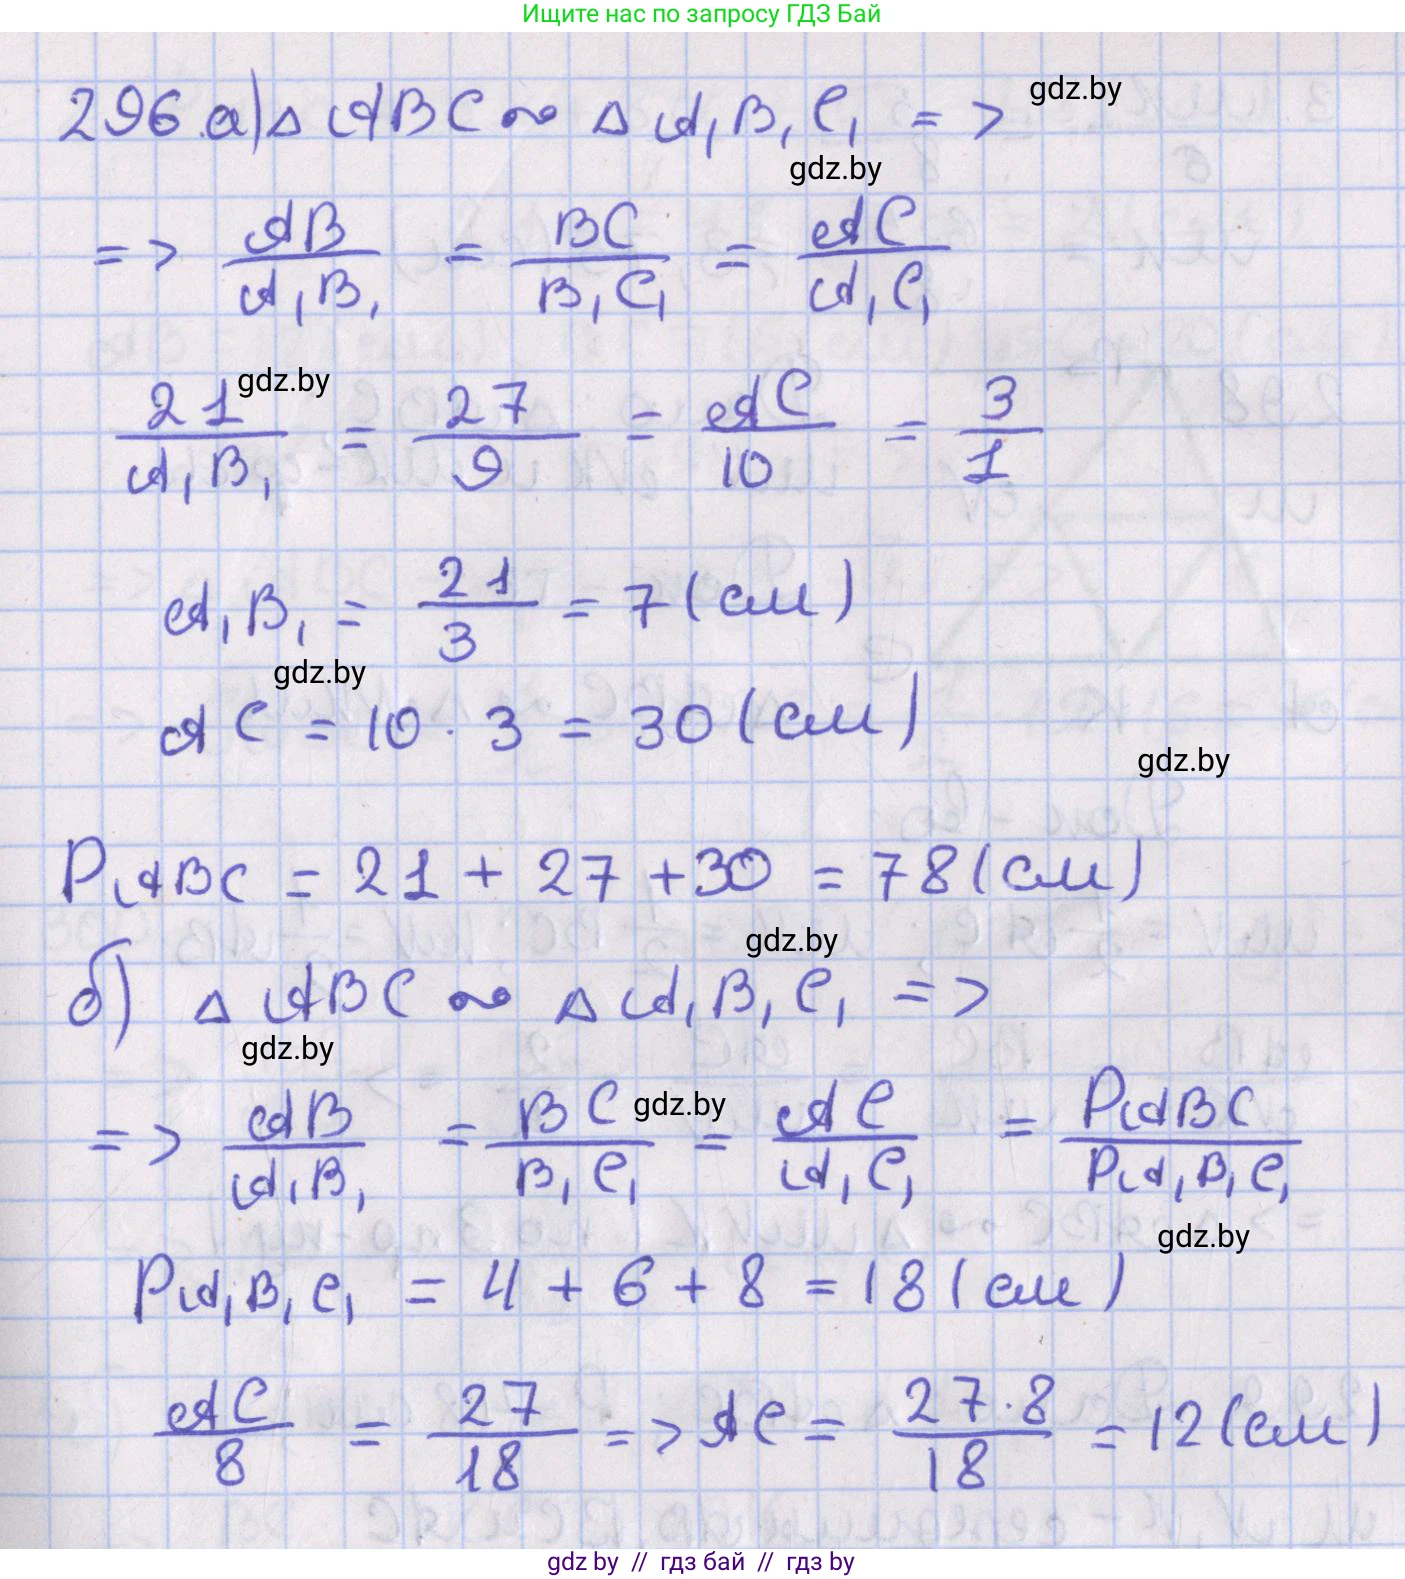 Ищите нас по запросу ГДЗ Бай
296 а) △ ABC ∾ △ A₁B₁C₁ =>
gdz.by
gdz.by
=> AB/A₁B₁ = BC/B₁C₁ = AC/A₁C₁
gdz.by
21/A₁B₁ = 27/9 = AC/10 = 3/1
A₁B₁ = 21/3 = 7 (см)
gdz.by
AC = 10 · 3 = 30 (см)
gdz.by
P ABC = 21 + 27 + 30 = 78 (см)
gdz.by
б) △ ABC ∾ △ A₁B₁C₁ =>
gdz.by
gdz.by
=> AB/A₁B₁ = BC/B₁C₁ = AC/A₁C₁ = P ABC/P A₁B₁C₁
gdz.by
P A₁B₁C₁ = 4 + 6 + 8 = 18 (см)
AC/8 = 27/18 => AC = 27·8/18 = 12 (см)
gdz by // гдз бай // гдз by